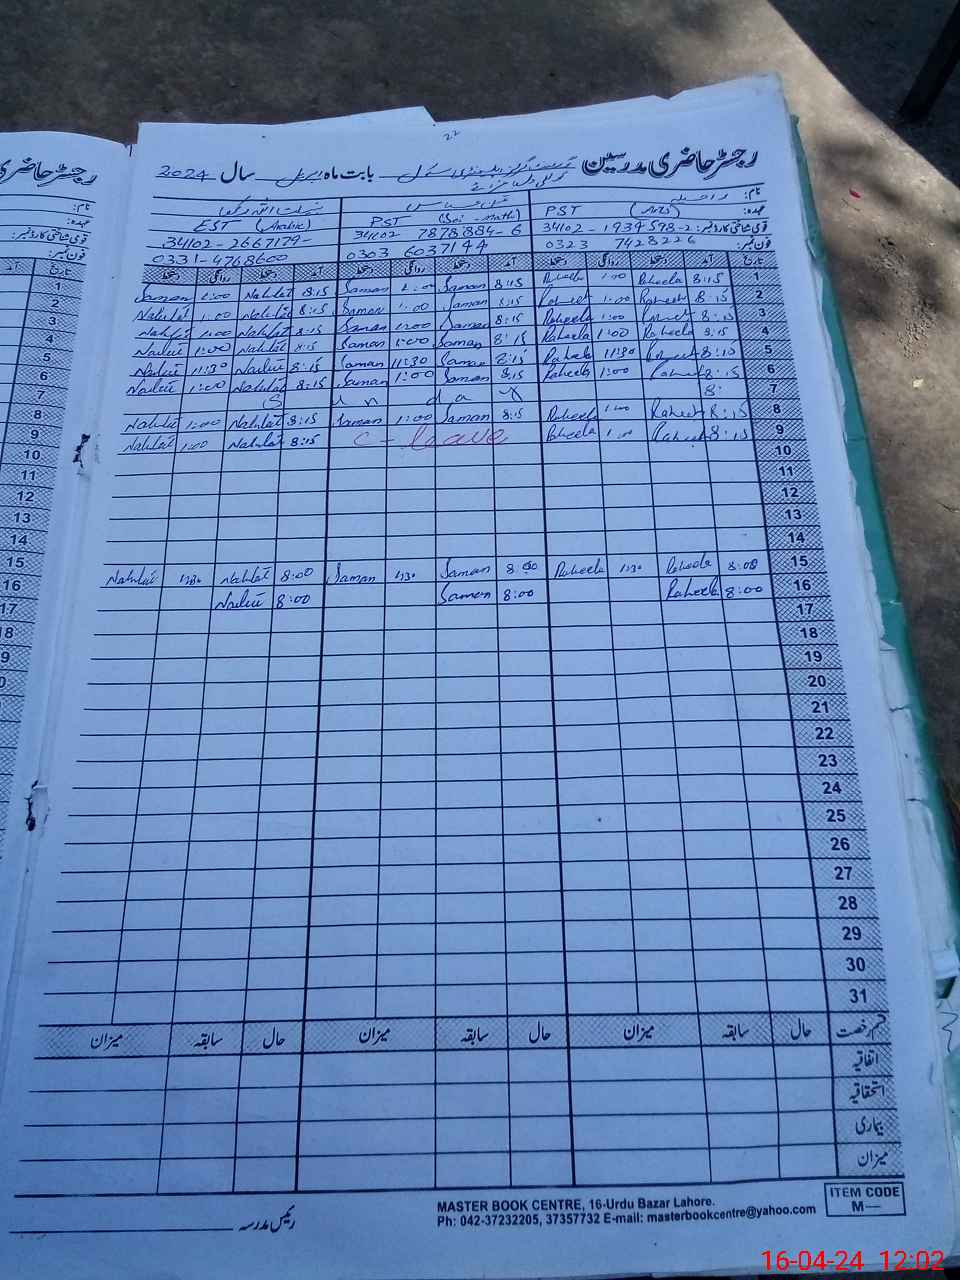 رجسٹر حاضری مدرسین بابت ماہ اپریل سال 2024
نام: راحیلہ
عہدہ: PST (Arts) PST (Sci - Math) EST (Arabic)
قومی شناختی کارڈ نمبر: 34102 - 1934598-2 34102 7878884-6 34102-2667179-
فون نمبر: 0323 7428226 0303 6037144 0331-4768600
تاریخ آمد دستخط روانگی دستخط آمد دستخط روانگی دستخط آمد دستخط روانگی دستخط
1 8:15 Raheela 1:00 Raheela 8:15 Saman 1:00 Saman 8:15 Nahlat 1:00
2 8:15 Raheela 1:00 Raheela 8:15 Saman 1:00 Saman 8:15 Nahlat 1:00 Nahlat
3 8:15 Raheela 1:00 Raheela 8:15 Saman 1:00 Saman 8:15 Nahlat 1:00 Nahlat
4 8:15 Raheela 1:00 Raheela 8:15 Saman 1:00 Saman 8:15 Nahlat 1:00 Nahlat
5 8:15 Raheela 11:30 Raheela 8:15 Saman 11:30 Saman 8:15 Nahlat 11:30 Nahlat
6 8:15 Raheela 1:00 Raheela 8:15 Saman 1:00 Saman 8:15 Nahlat 1:00 Nahlat
7 8: S u n d a y
8 8:15 Raheela 1:00 Raheela 8:15 Saman 1:00 Saman 8:15 Nahlat 1:00 Nahlat
9 8:15 Raheela 1:00 Raheela C - leave 8:15 Nahlat 1:00 Nahlat
10
11
12
13
14
15 8:00 Raheela 1:30 Raheela 8:00 Saman 1:30 Saman 8:00 Nahlat 1:30 Nahlat
16 8:00 Raheela 8:00 Saman 8:00 Nahlat
17
18
19
20
21
22
23
24
25
26
27
28
29
30
31
قسم رخصت حال سابقہ میزان حال سابقہ میزان حال سابقہ میزان
اتفاقیہ
استحقاقیہ
بیماری
میزان
رئیس مدرسہ
MASTER BOOK CENTRE, 16-Urdu Bazar Lahore.
Ph: 042-37232205, 37357732 E-mail: masterbookcentre@yahoo.com
ITEM CODE
M—
16-04-24 12:02